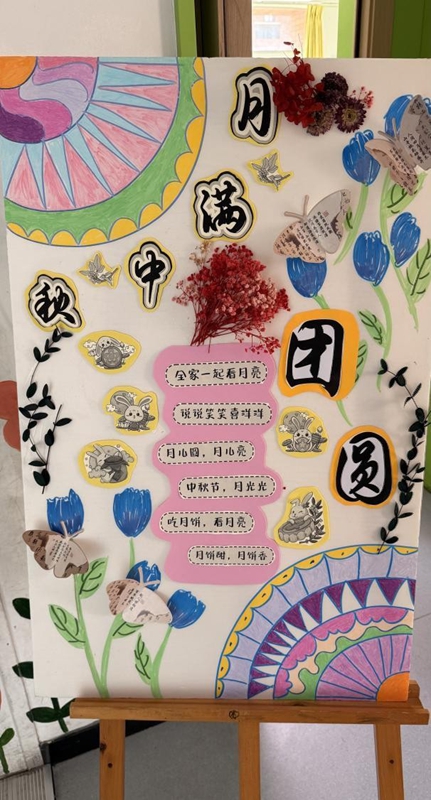 月满中秋
团圆
全家一起看月亮
说说笑笑喜洋洋
月儿圆，月儿亮
中秋节，月光光
吃月饼，看月亮
月饼甜，月饼香